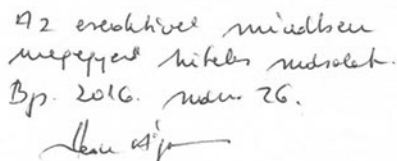 Az eredetivel mindben
megegyező hiteles másolat.
Bp. 2016. 26.